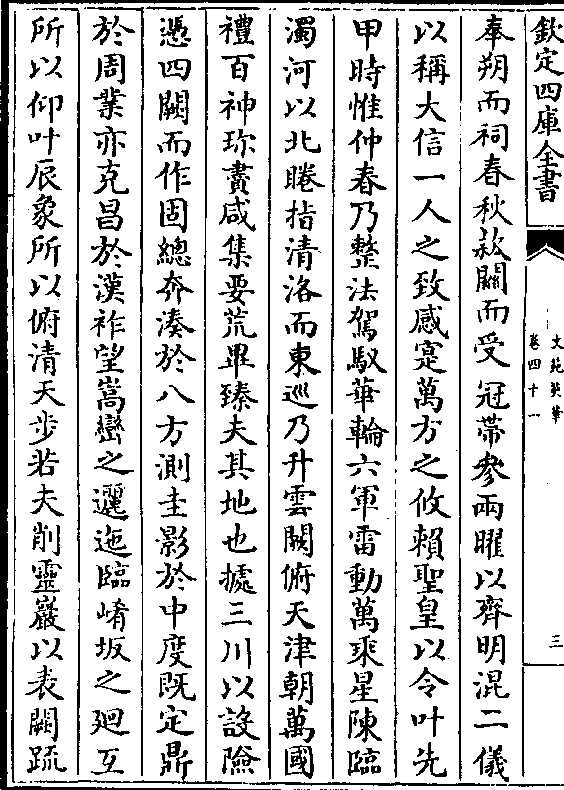 欽定四庫全書
文苑英華
卷四十一
三
奉朔而祠春秋款關而受冠帶參兩曜以齊明混二儀
以稱大信一人之致感寔萬方之攸賴聖皇以令叶先
甲時惟仲春乃整法駕馭華輪六軍雷動萬乘星陳臨
濁河以北睠指清洛而東巡乃升雲闕俯天津朝萬國
禮百神珍賮咸集要荒畢臻夫其地也據三川以設險
憑四闕而作固總奔湊於八方測圭影於中度既定鼎
於周業亦克昌於漢祚望嵩巒之邐迤臨崤坂之廻互
所以仰叶辰象所以俯清天步若夫削靈巖以表闕疏